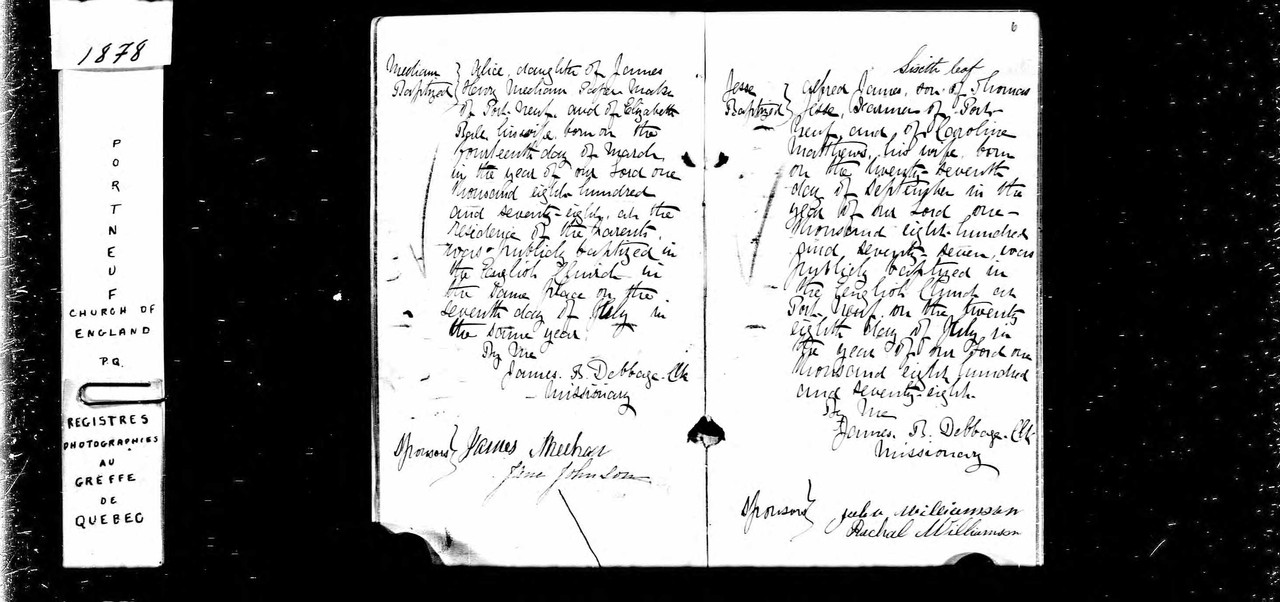 1878
PORTNEUF
CHURCH OF
ENGLAND
P.Q.
REGISTRES
PHOTOGRAPHIES
AU
GREFFE
DE
QUEBEC
Meehan
Baptized
Alice, daughter of James
Henry Meehan Paper Maker
of Port-Neuf, and of Elizabeth
his wife, born on the
fourteenth day of March,
in the year of our Lord one
thousand eight hundred
and seventy-eight, at the
residence of the parents,
was publicly baptized in
the English Church in
the same place on the
seventh day of July in
the same year.
By Me
James. B. Debbage. Clk
Missionary
Sponsors
James Meehan
Jane Johnson
6
Sixth leaf
Jesse
Baptized
Alfred James, son of Thomas
Jesse, Farmer of Port-
Neuf, and of Caroline
Matthews, his wife, born
on the twenty-seventh
day of September in the
year of our Lord one-
thousand eight-hundred
and seventy-seven, was
publicly baptized in
the English Church at
Port-Neuf, on the twenty
eighth day of July in
the year of our Lord one
thousand eight hundred
and seventy-eight.
By Me
James. B. Debbage. Clk.
Missionary
Sponsors
Williamson
Rachel Williamson